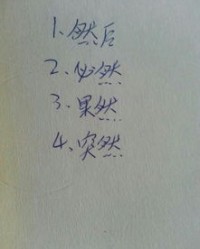 1、然后
2、必然
3、果然
4、突然